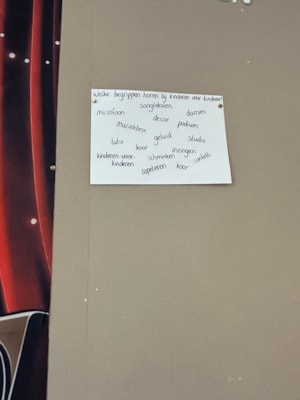 Welke begrippen horen bij kinderen voor kinderen?
songteksten
microfoon dansen
decor
muziekbox podium
geluid
tutu studio
koor inzingen
kinderen-voor- schminken confetti
kinderen
repeteren koor